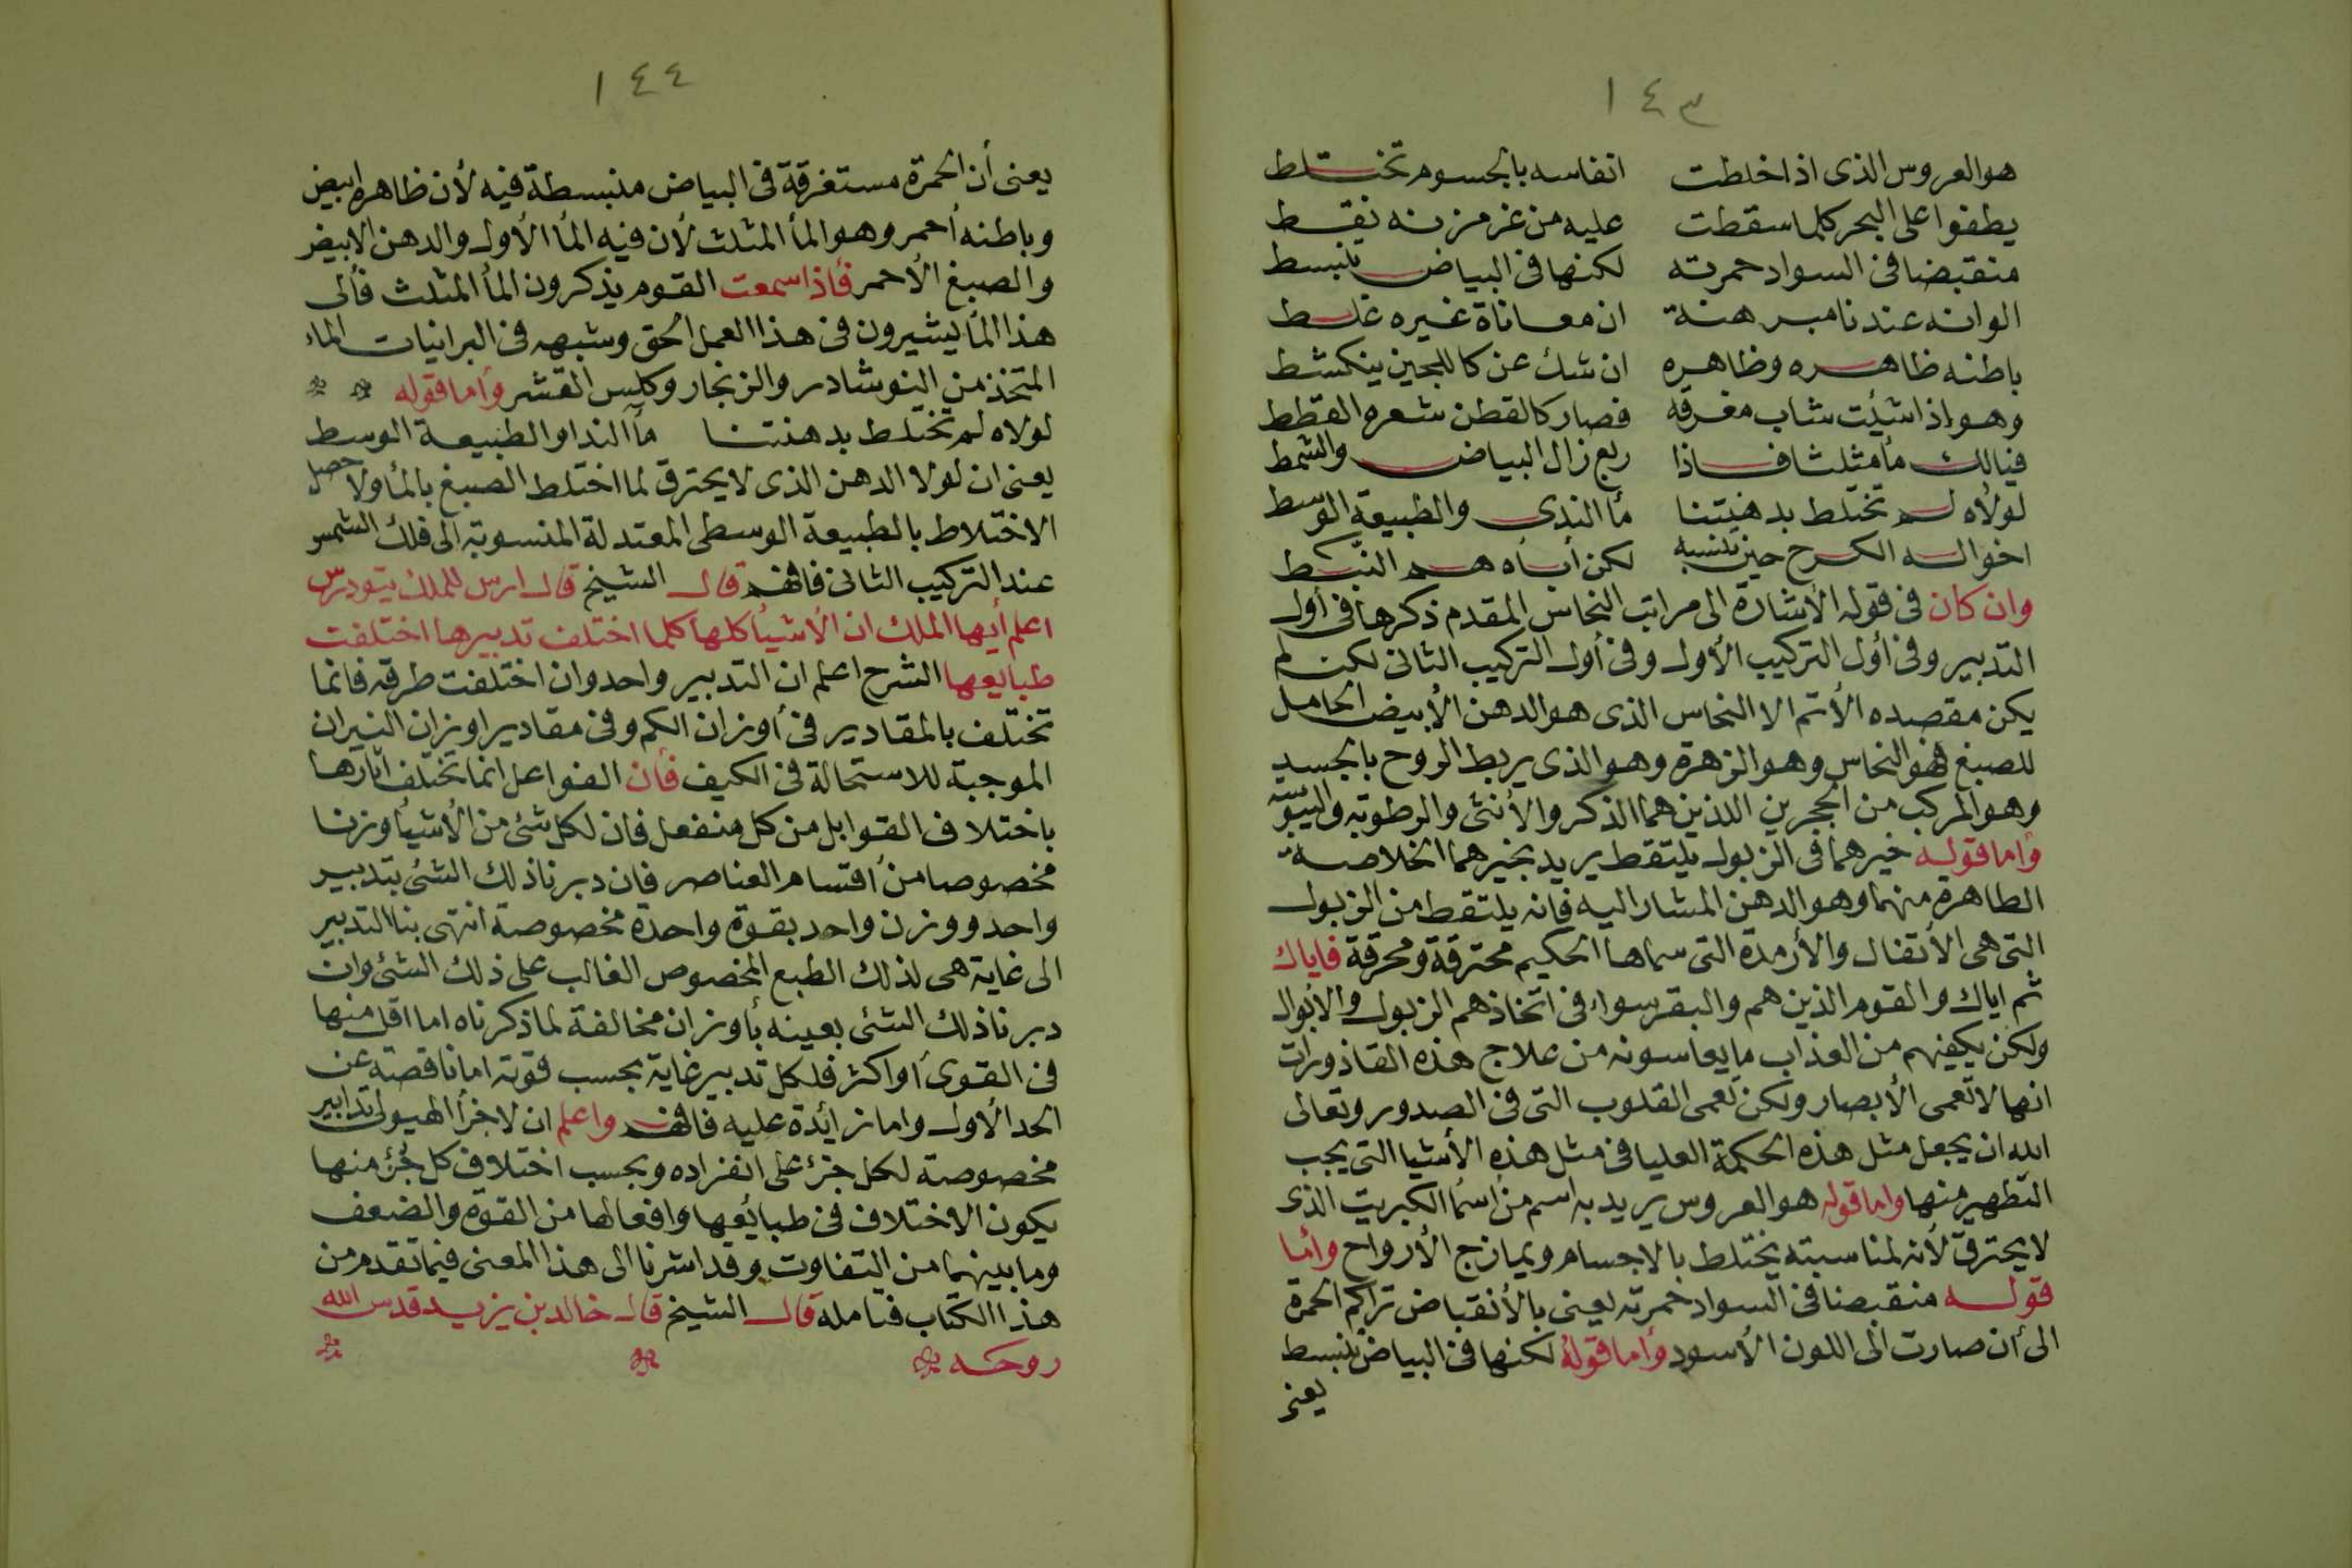 ١٤٣
هو العروس الذى اذا خلطت انفاسه بالجسوم تختلط
يطفوا على البحر كلما سقطت عليه من غر مزنه نقط
منقبضا فى السواد حمرته لكنها فى البياض تنبسط
الوانه عندنا مبرهنة ان معاناة غيره غلط
باطنه ظاهره وظاهره ان شك عن كاللجين ينكشط
وهو اذا شئت شاب مفرقه فصار كالقطن شعره القطط
فيالك مأ مثلثا فاذا ربع زال البياض والشمط
لولاه لم تختلط بدهنيتنا مأ الندى والطبيعة الوسط
اخواله الكرح حين تنسبه لكن أباه هم النبط
وان كان فى قوله الأشارة الى مراتب النحاس المقدم ذكرها فى أول
التدبير وفى أول التركيب الأول وفى أول التركيب الثانى لكن لم
يكن مقصده الأتم الا النحاس الذى هو الدهن الأبيض الحامل
للصبغ فهو النحاس وهو الزهرة وهو الذى يربط الروح بالجسد
وهو المركب من الحجرين اللذين هما الذكر والأنثى والرطوبة واليبوسة
وأما قوله خيرهما فى الزبول يلتقط يريد بخيرهما الخلاصة
الطاهرة منهما وهو الدهن المشار اليه فانه يلتقط من الزبول
التى هى الأتفال والأرمدة التى سماها الحكيم محترقة ومحرقة فاياك
ثم اياك والقوم الذين هم والبقر سواء فى اتخاذهم الزبول والأبوال
ولكن يكفيهم من العذاب ما يعاسونه من علاج هذه القاذورات
انها لا تعمى الأبصار ولكن تعمى القلوب التى فى الصدور وتعالى
الله ان يجعل مثل هذه الحكمة العليا فى مثل هذه الأشيا التى يجب
التطهير منها واما قوله هو العروس يريد به اسم من أسمأ الكبريت الذى
لا يحترق لأنه لمناسبته يختلط بالاجسام ويمازج الأرواح وأما
قوله منقبضا فى السواد حمرته يعنى بالأنقباض تراكم الحمرة
الى أن صارت الى اللون الأسود وأما قوله لكنها فى البياض تنبسط
يعنى
١٤٤
يعنى أن الحمرة مستغرقة فى البياض منبسطة فيه لأن ظاهره ابيض
وباطنه أحمر وهو المأ المثلث لأن فيه المأ الأول والدهن الابيض
والصبغ الأحمر فأذا سمعت القوم يذكرون المأ المثلث فألى
هذا المأ يشيرون فى هذا العمل الحق وشبهه فى البرانيات الماء
المتخذ من النوشادر والزنجار وكلس القشر وأما قوله
لولاه لم تختلط بدهنتنا مأ الندا والطبيعة الوسط
يعنى ان لولا الدهن الذى لا يحترق لما اختلط الصبغ بالمأ ولا حصل
الاختلاط بالطبيعة الوسطى المعتدلة المنسوبة الى فلك الشمس
عند التركيب الثانى فافهم قال الشيخ قال ارس للملك يتودرس
اعلم أيها الملك ان الأشيأ كلها كلما اختلف تدبيرها اختلفت
طبايعها الشرح اعلم ان التدبير واحد وان اختلفت طرقه فانما
تختلف بالمقادير فى أوزان الكم وفى مقادير اوزان النيران
الموجبة للاستحالة فى الكيف فأن الفواعل انما تختلف اثارها
باختلاف القوابل من كل منفعل فان لكل شئ من الأشيأ وزنا
مخصوصا من أقتسام العناصر فان دبرنا ذلك الشئ بتدبير
واحد ووزن واحد بقوة واحدة مخصوصة انتهى بنا التدبير
الى غاية هى لذلك الطبع المخصوص الغالب على ذلك الشئ وان
دبرنا ذلك الشئ بعينه بأوزان مخالفة لما ذكرناه اما اقل منها
فى القوى أو اكثر فلكل تدبير غاية بحسب قوته اما ناقصة عن
الحد الأول واما زائدة عليه فافهم واعلم ان لاجزأ الهيولى تدابير
مخصوصة لكل جزء على انفراده وبحسب اختلاف كل جزء منها
يكون الاختلاف فى طبائعها وافعالها من القوة والضعف
وما بينهما من التفاوت وقد اشرنا الى هذا المعنى فيما تقدم من
هذا الكتاب فتامله قال الشيخ قال خالد بن يزيد قدس الله
روحه